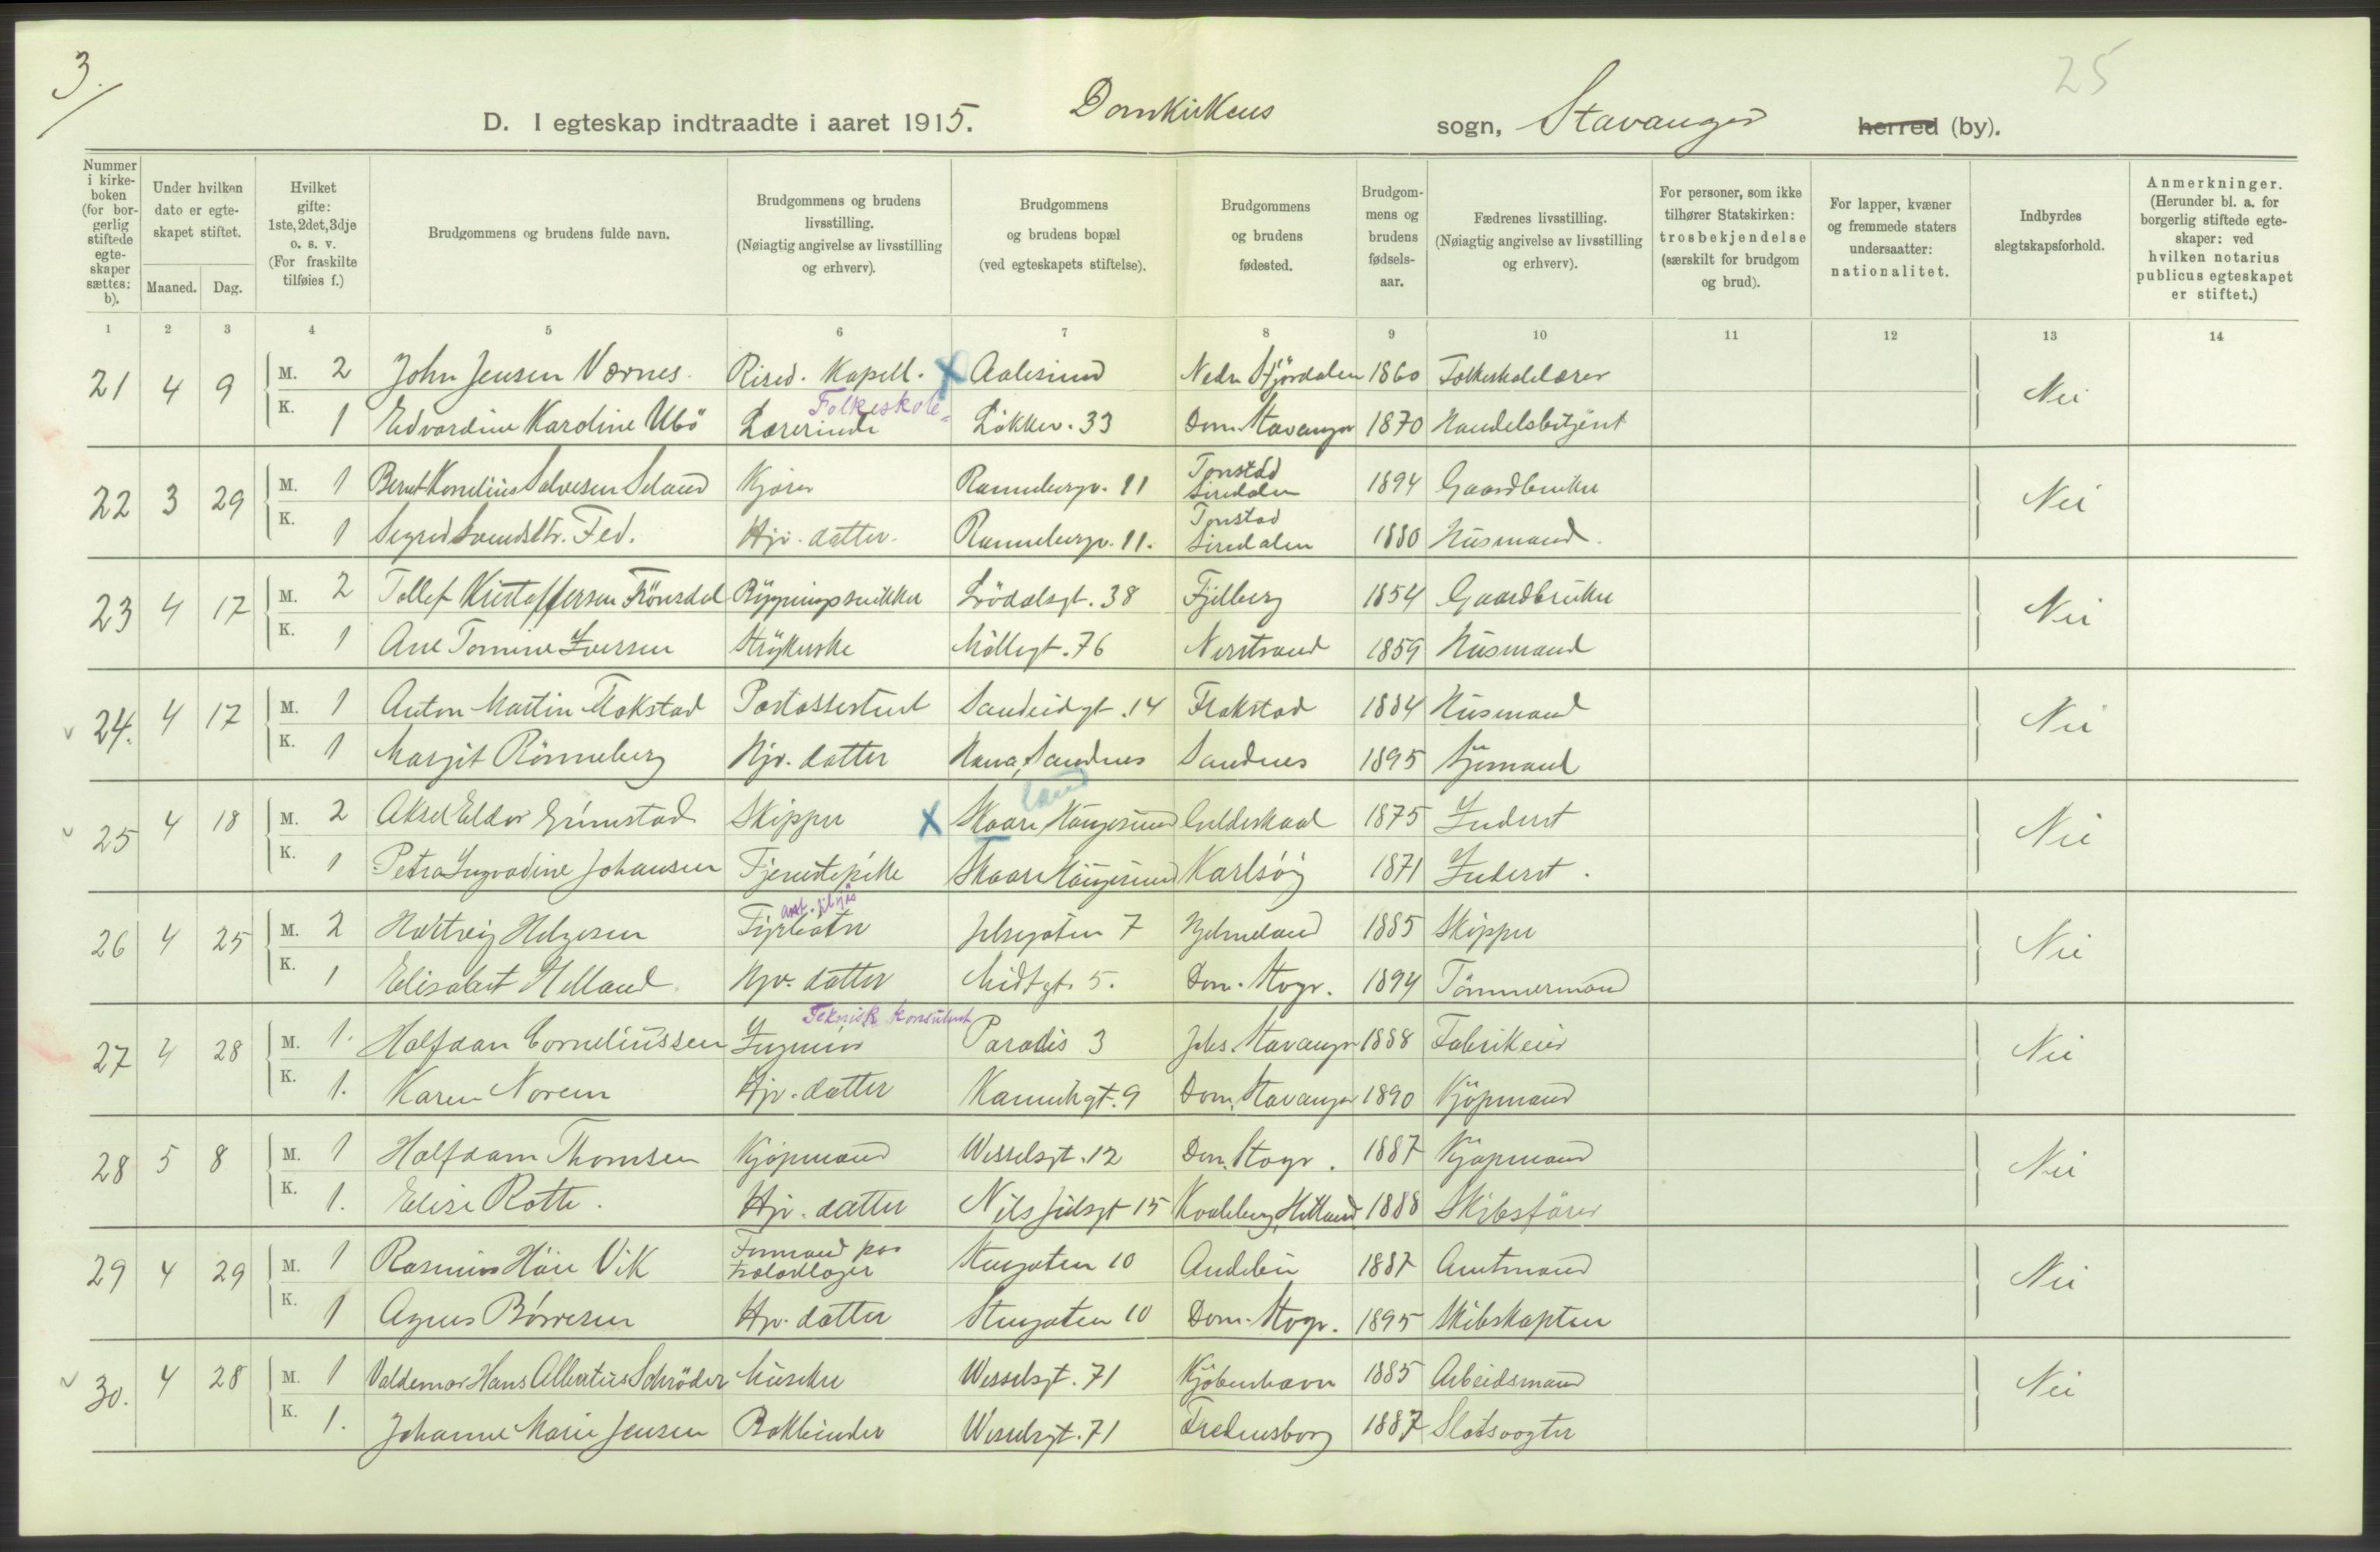 3.
25
D. I egteskap indtraadte i aaret 1915. Domkirkens sogn, Stavanger herred (by).
Nummer i kirkeboken (for borgerlig stiftede egteskaper sættes: b).
Under hvilken dato er egteskapet stiftet.
Maaned. Dag.
Hvilket gifte: 1ste, 2det, 3dje o. s. v. (For fraskilte tilføies f.)
Brudgommens og brudens fulde navn.
Brudgommens og brudens livsstilling. (Nøiagtig angivelse av livsstilling og erhverv).
Brudgommens og brudens bopæl (ved egteskapets stiftelse).
Brudgommens og brudens fødested.
Brudgommens og brudens fødselsaar.
Fædrenes livsstilling. (Nøiagtig angivelse av livsstilling og erhverv).
For personer, som ikke tilhører Statskirken: trosbekjendelse (særskilt for brudgom og brud).
For lapper, kvæner og fremmede staters undersaatter: nationalitet.
Indbyrdes slegtskapsforhold.
Anmerkninger. (Herunder bl. a. for borgerlig stiftede egteskaper: ved hvilken notarius publicus egteskapet er stiftet.)
1 2 3 4 5 6 7 8 9 10 11 12 13 14
21 4 9 M. 2 John Jensen Værnes. Resed. Kapell. X Aalesund Nedre Stjördalen 1860 Folkeskolelærer Nei
K. 1 Edvardine Karoline Ubö Folkeskole= Lærerinde Lökkev. 33 Dom. Stavanger 1870 Handelsbetjent
22 3 29 M. 1 Bernt Kornelius Salvesen Seland Kjører Rannebergv. 11 Tonstad Siredalen 1894 Gaardbruker Nei
K. 1 Sigrid Svendsdtr. Fed. Hjv. datter. Rannebergv. 11. Tonstad Siredalen 1880 Husmand.
23 4 17 M. 2 Tollef Kristoffersen Frönsdal Bygningssnikker Lödalsgt. 38 Fjelberg 1854 Gaardbruker Nei
K. 1 Ane Tomine Iversen Strykerske Möllegt. 76 Nerstrand 1859 Husmand
24. 4 17 M. 1 Anton Martin Flokstad Postassistent Sandeidgt. 14 Flakstad 1884 Husmand Nei
K. 1 Margit Rönneberg Hjv. datter Hana, Sandnes Sandnes 1895 Sjömand
25 4 18 M. 2 Aksel Eldor Grimstad Skipper X Skaare land Haugesund Gildeskaal 1875 Inderst Nei
K. 1 Petra Ingvadine Johansen Tjenestepike Skaare Haugesund Karlsöy 1871 Inderst.
26 4 25 M. 2 Hartvig Helgesen Fyrböter Jelsegaten 7 Hjelmeland 1885 Skipper Nei
K. 1 Elisabet Helland Hjv. datter Midtgt. 5. Dom. Stvgr. 1894 Tömmermand
27 4 28 M. 1. Halfdan Corneliussen Teknisk konsulent Ingeniør Paradis 3 Johs. Stavanger 1888 Fabrikeier Nei
K. 1. Karen Norem Hjv. datter Kannikgt. 9 Dom. Stavanger 1890 Kjöpmand
28 5 8 M. 1 Halfdan Thomsen Kjöpmand Wesselsgt. 12 Dom. Stvgr. 1887 Kjöpmand Nei
K. 1. Elise Rotte. Hjv. datter Nils Julsgt 15 Kvaleberg, Hetland 1888 Skibsförer
29 4 29 M. 1 Rasmus Høie Vik Formand paa Stengaten 10 Andebu 1887 Amtmand Nei
K. 1 Agnes Börresen Hjv. datter Stengaten 10 Dom. Stvgr. 1895 Skibskaptein
30. 4 28 M. 1 Valdemar Hans Albertus Schröder Musiker Wesselsgt. 71 Kjöbenhavn 1885 Arbeidsmand Nei
K. 1. Johanne Marie Jensen Bokbinder Wesselsgt. 71 Fredensborg 1887 Slotsvogter